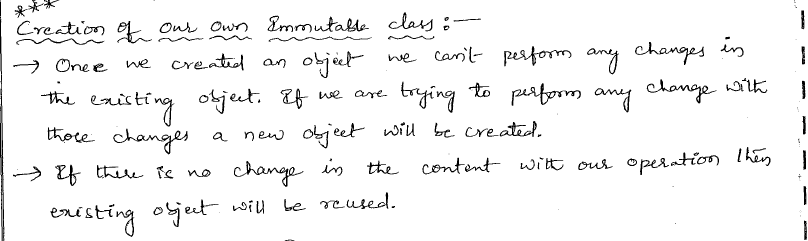 ***
Creation of our own Immutable class :—
→ Once we created an object we can't perform any changes in
the existing object. If we are trying to perform any change with
those changes a new object will be created.
→ If there is no change in the content with our operation then
existing object will be reused.